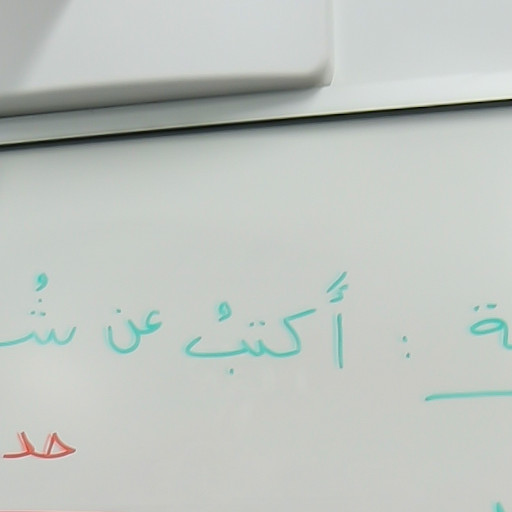 ة : أَكتبُ عن شُ
حد